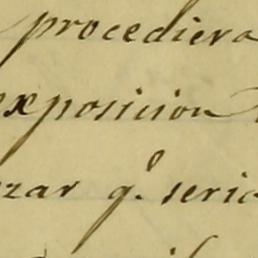 procediera
exposicion
zar q.e seria